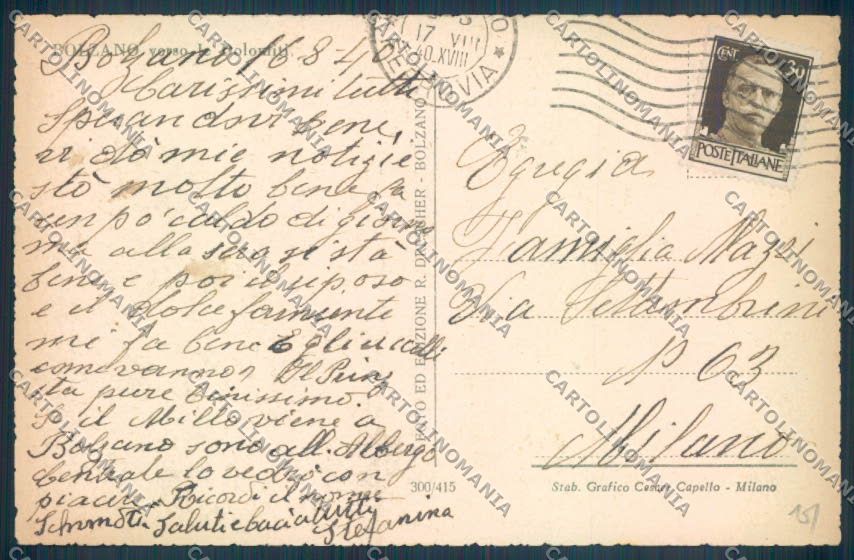 BOLZANO verso le Dolomiti.
Bolzano 16-8-40
Carissimi tutti
Sperandovi bene,
vi dò mie notizie
stò molto bene fa
un pò caldo di giorno
ma alla sera si stà
bene e poi il riposo
e il dolce far niente
mi fa bene E gli uccelli
come vanno? Il
sta pure benissimo.
Se il Millo viene a
Bolzano sono all. Albergo
Centrale lo vedrò con
piacere. Ricordi il nome
Schmidt. Saluti e baci a tutti
Stefanina
17 VIII
40.XVIII
FERROVIA
ED EDIZIONE R. DRESCHER - BOLZANO
CENT. 30
POSTE ITALIANE
Egregia
Famiglia Mazzi
Via Settembrini
N° 63
Milano
300/415
Stab. Grafico Cesare Capello - Milano
151
CARTOLINOMANIA